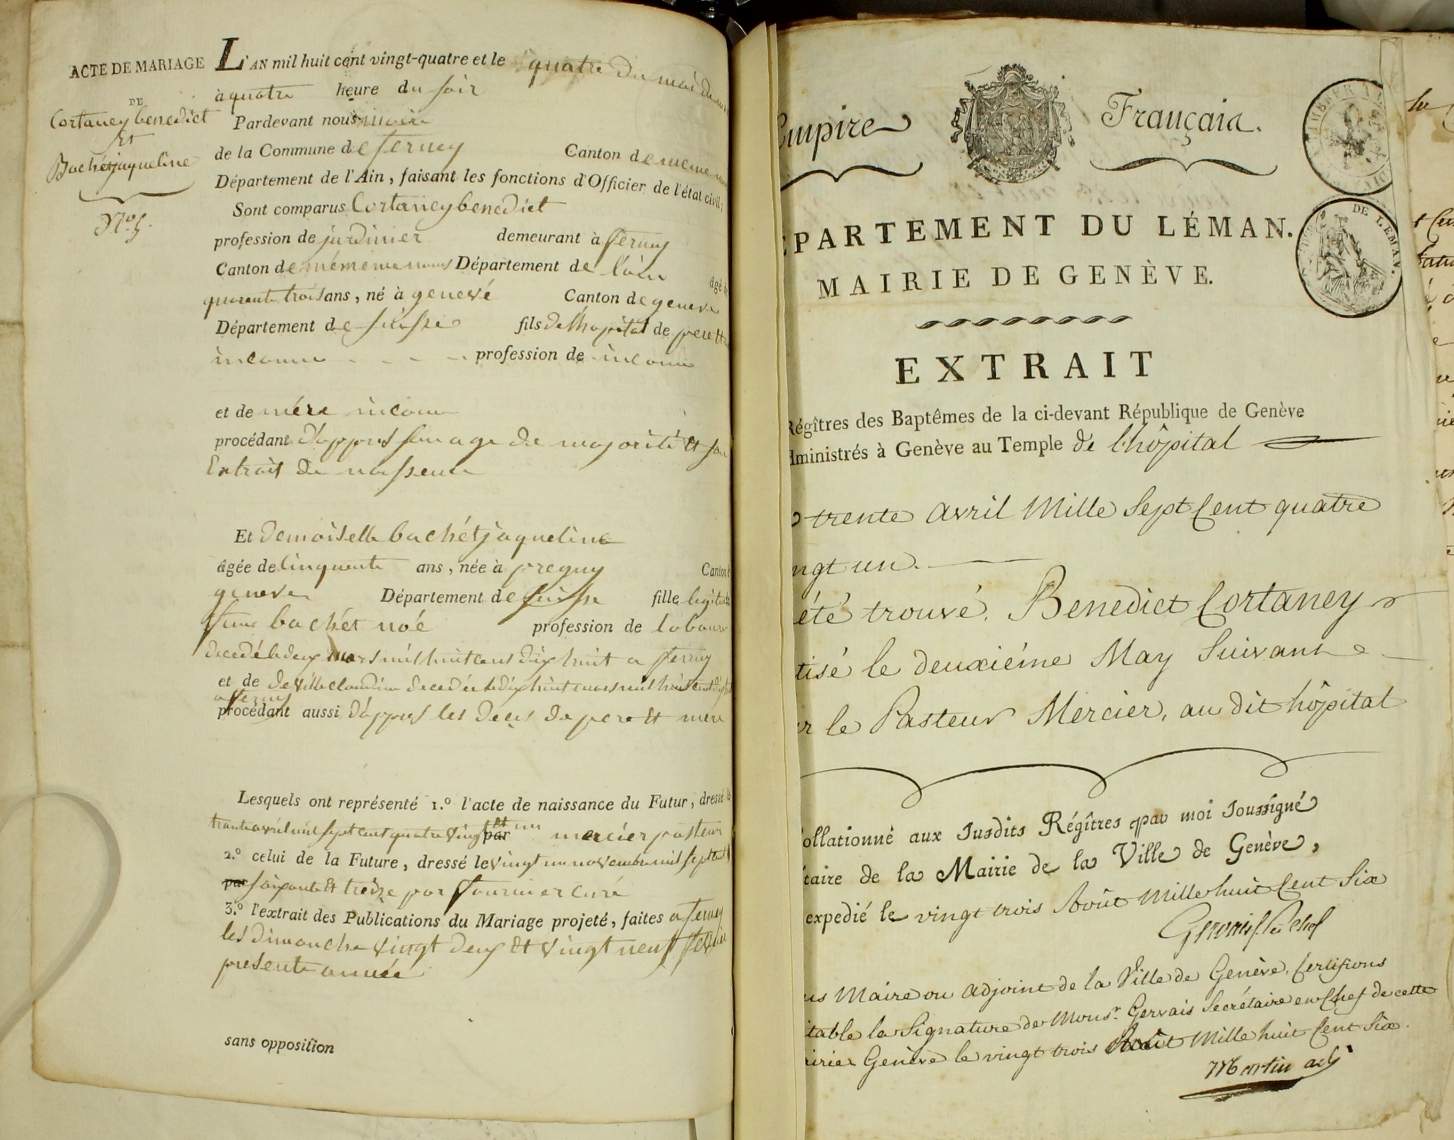 ACTE DE MARIAGE
DE
Cortaney benedict
Et
Bachet jaqueline
N° 5.
L'AN mil huit cent vingt-quatre et le quatre du mois de
à quatre heure du soir
Pardevant nous maire
de la Commune de ferney Canton de meme
Département de l'Ain, faisant les fonctions d'Officier de l'état civil;
Sont comparus Cortaney benedict
profession de jardinier demeurant à ferney
Canton de Département de l'ain âgé
quarente trois ans, né à genevé Canton de geneve
Département de suisse fils de lhopital de pere Et
inconnu profession de inconnu
et de mére inconu
procédant d'appres son age de majorité Et son
Extrait de naissence
Et demoiselle bachét jaqueline
âgée de cinquente ans, née à pregny Canton
geneve Département de suisse fille legit
bachét noé profession de labour
decedé le deux mars mil huit cent dix huit a ferney
et de deville claudine decedée le dix huit mars mil huit cent
a ferney
procédant aussi d'appres les deces de pere Et mere
Lesquels ont représenté 1.° l'acte de naissance du Futur, dressé
trente avril mil sept cent quatre vingt Et un par mercier pasteur
2.° celui de la Future, dressé le vingt un novembre mil sept cent
par soixante Et treize par fournier curé
3.° l'extrait des Publications du Mariage projeté, faites a ferney
les dimanche vingt deux Et vingt neuf
presente année
sans opposition
Empire Français.
DÉPARTEMENT DU LÉMAN.
MAIRIE DE GENÈVE.
DE LEMAN.
EXTRAIT
Régîtres des Baptêmes de la ci-devant République de Genève
dministrés à Genève au Temple de l'hôpital
trente avril Mille Sept Cent quatre
ngt un.
été trouvé, Benedict Cortaney
tisé le deuxiéme May Suivant
r le Pasteur Mercier, au dit hôpital
ollationné aux susdits Régîtres par moi soussigné
taire de la Mairie de la Ville de Genève,
expedié le vingt trois Août Mille huit Cent Six
us Maire ou adjoint de la Ville de Genève, Certifions
itable la Signature de Monsr. Gervais Secrétaire en Chef de cette
irie Genève le vingt trois Août Mille huit Cent Six.
Martin adj